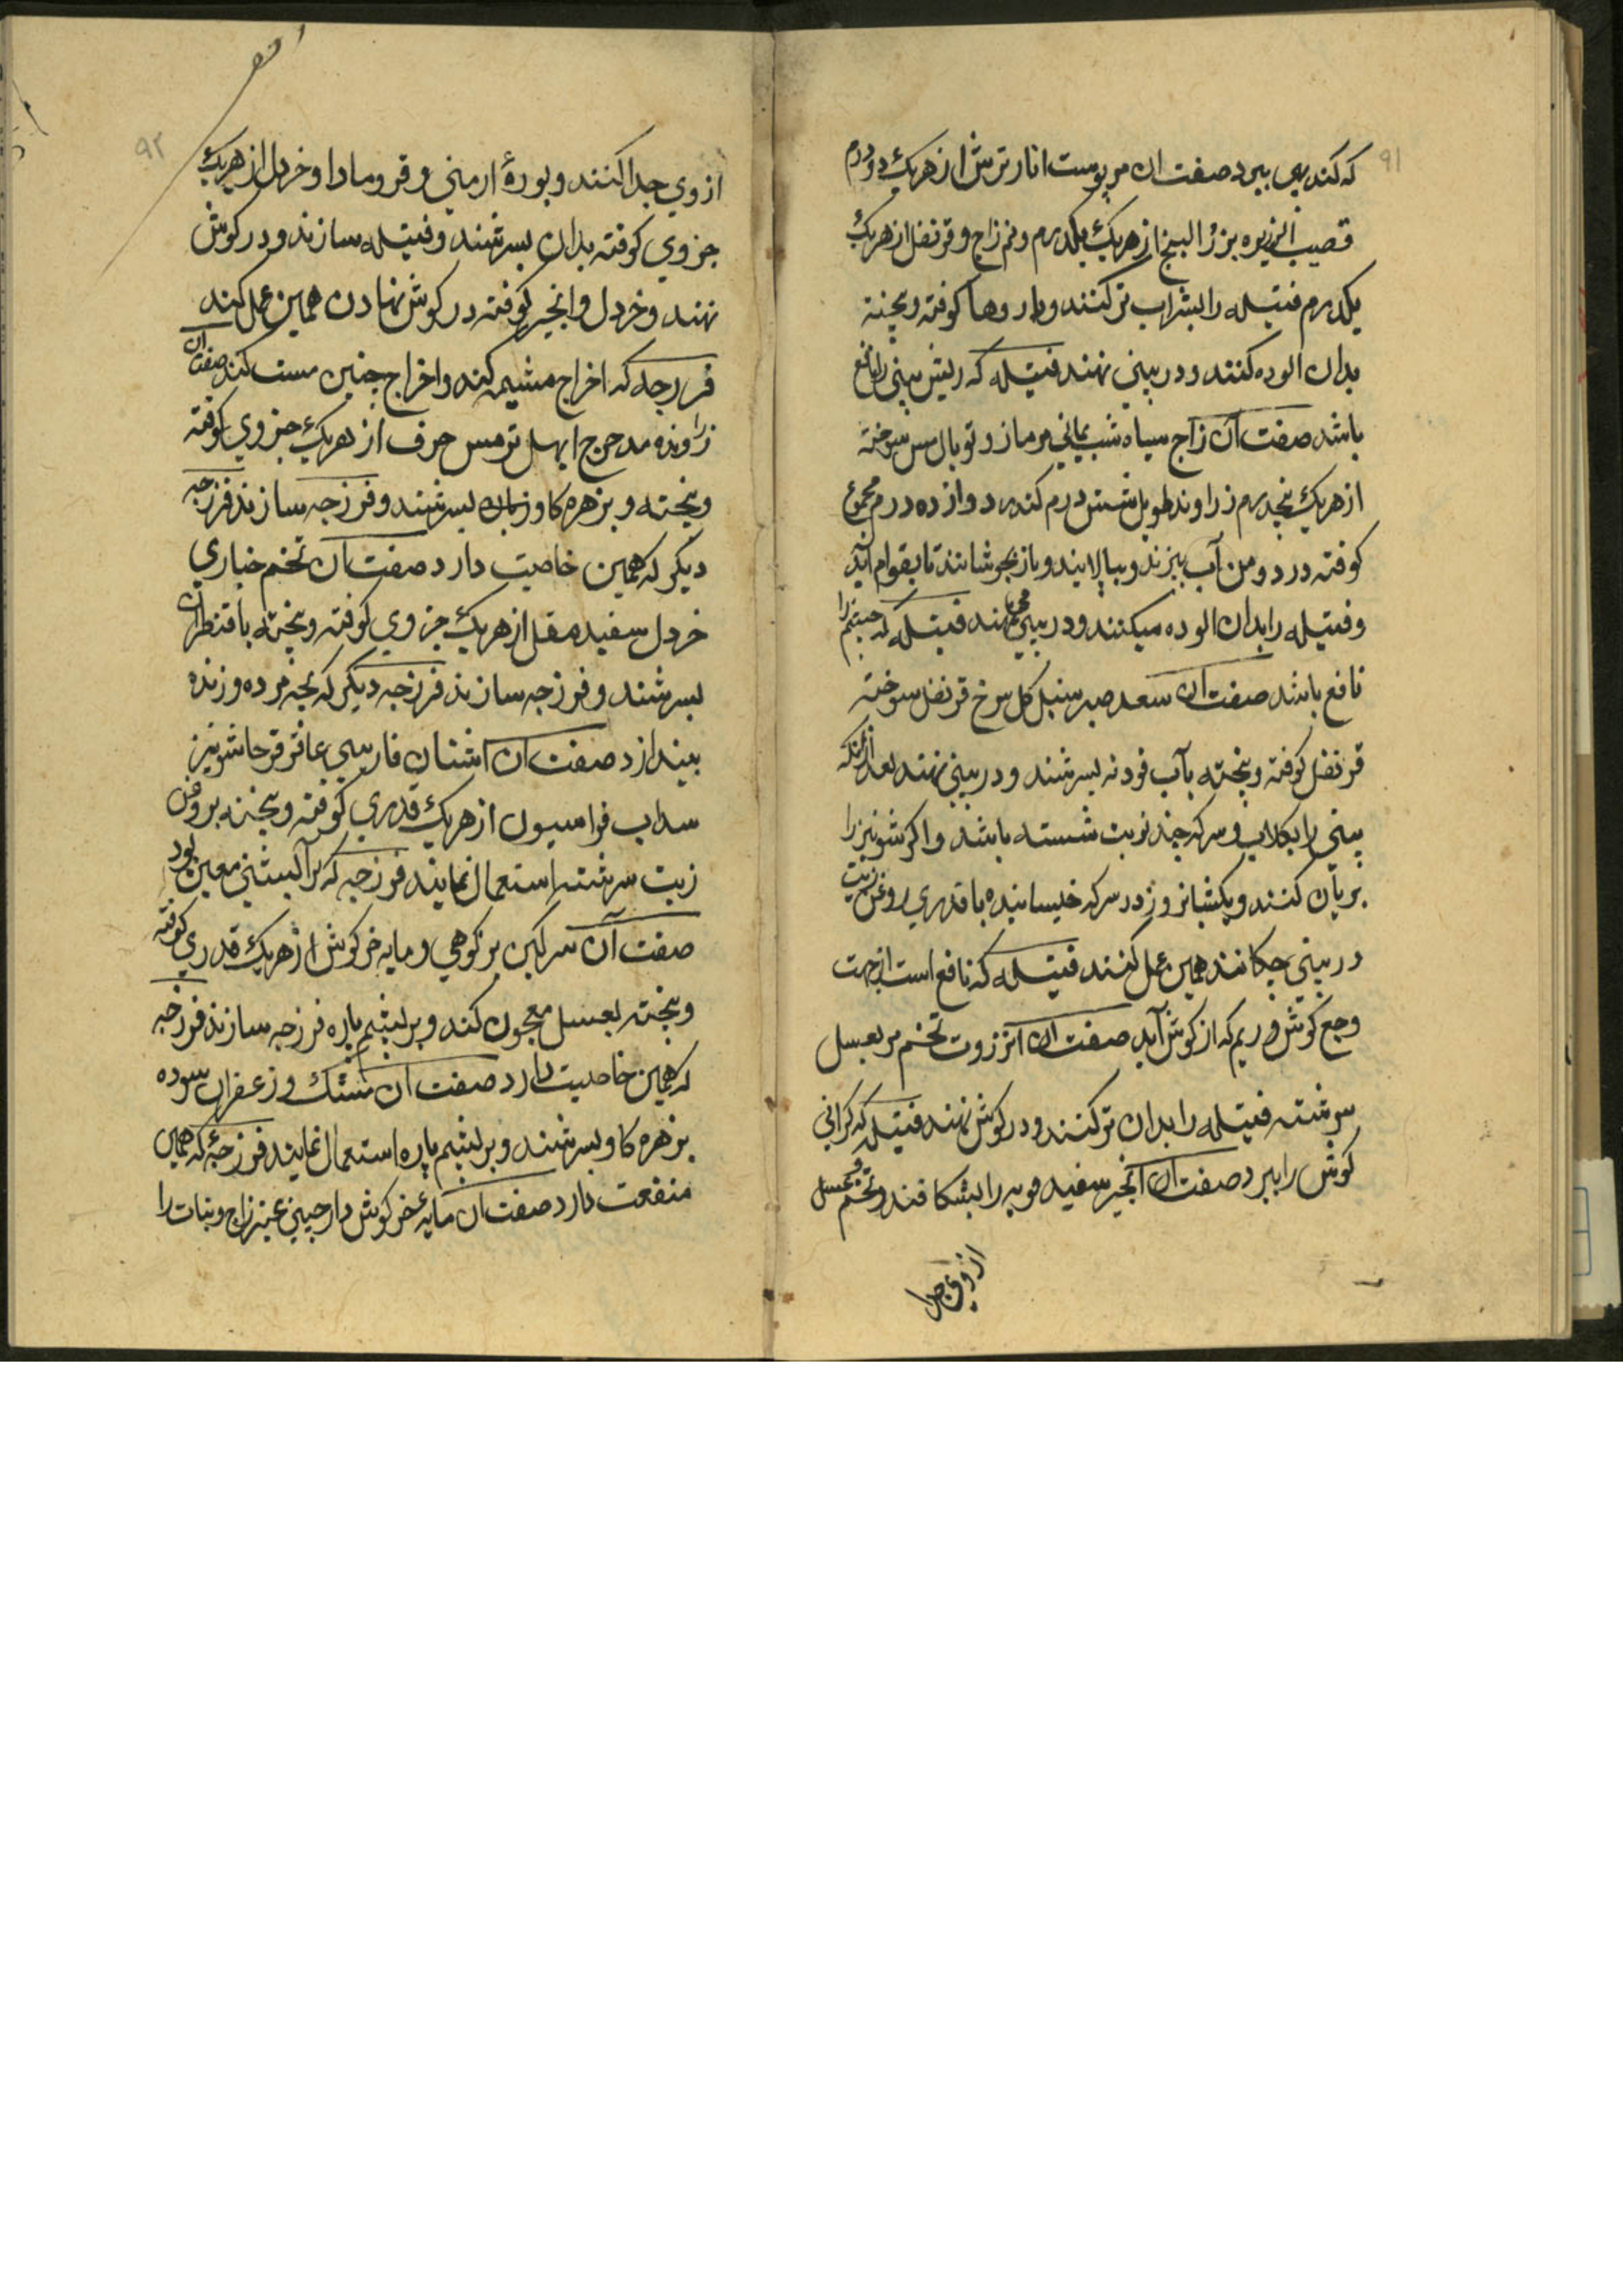 ۹۱
که کند بوی ببرد صفت ان مر پوست انار ترش از هریک دو درم
قصیب الذریره بزر البنج از هریک یکدرم و نیم زاج و قرنفل از هریک
یکدرم فتیله را بشراب تر کنند و داروها کوفته و بیخته
بدان الوده کنند و در بینی نهند فتیله که ریش بینی را نافع
باشد صفت آن زاج سیاه شب یمانی مر مازو توبال مس سوخته
از هریک پنجدرم زراوند طویل شش درم کندر دوازده درم مجموع
کوفته در دو من آب بپزند و بپالایند و باز بجوشانند تا بقوام آید
و فتیله را بدان الوده میکنند و در بینی می نهند فتیله که خشم را
نافع باشد صفت ان سعد صبر سنبل کل سرخ قرنفل سوخته
قرنفل کوفته و بیخته بآب فودنه بسرشند و در بینی نهند بعد از انکه
بینی را بکلاب و سرکه چند نوبت شسته باشد و اکر شونیز را
بریان کنند و یکشبانروز در سرکه خیسانیده با قدری روغن زیت
در بینی چکانند همین عمل کنند فتیله که نافع است از جهت
وجع کوش و ریم که از کوش آید صفت ان انزروت تخم مر بعسل
سرشته فتیله را بدان تر کنند و در کوش نهند فتیله که کرانی
کوش را ببرد صفت ان انجیر سفید فربه را بشکافند و تخم و عسل
از وی جدا
۹۲
از وی جدا کنند و بورهٔ ارمنی و قردمادا و خردل از هریک
جزوی کوفته بدان بسرشند و فتیله سازند و در کوش
نهند و خردل و انجیر کوفته در کوش نهادن همین عمل کند
فرزجه که اخراج مشیمه کند و اخراج جنین مست کند صفت ان
زراونده مدحرج ابهل ترمس حرف از هریک جزوی کوفته
و بیخته و بزهره کاو زمان بسرشند و فرزجه سازند فرزجه
دیکر که همین خاصیت دارد صفت ان تخم خیاری
خردل سفید مقل از هریک جزوی کوفته و بیخته با قطران
بسرشند و فرزجه سازند فرزجه دیکر که بچه مرده و زنده
بیندازد صفت ان اشنان فارسی عاقرقرحا شونیز
سداب فراسیون از هریک قدری کوفته و بیخته بروغن
زیت سرشته استعمال نمایند فرزجه که برآبستنی معین بود
صفت آن سرکین بز کوهی و مایه خرکوش از هریک قدری کوفته
و بیخته بعسل معجون کند و بر پشم پاره فرزجه سازند فرزجه
که همین خاصیت دارد صفت ان مشک و زعفران سوده
بزهره کاو بسرشند و بر پشم پاره استعمال نمایند فرزجهٔ که همین
منفعت دارد صفت ان مایهٔ خرکوش دارچینی عنبر زاج و نبات را